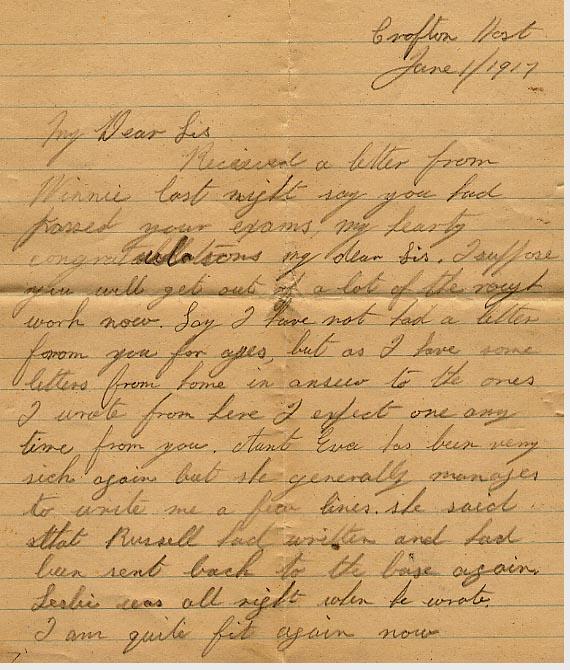 Crofton Host
June 1/1917
My Dear Sis
Received a letter from
Winnie last night say you had
passed your exams, my hearty
congratulations my dear Sis. I suppose
you will get out of a lot of the
work now. Say I have not had a letter
from you for ages, but as I have some
letters from home in answer to the ones
I wrote from here I expect one any
time from you. Aunt Eva has been very
sick again but she generally manages
to write me a few lines. she said
that Russell had written and had
been sent back to the base again.
Leslie was all right when he wrote.
I am quite fit again now